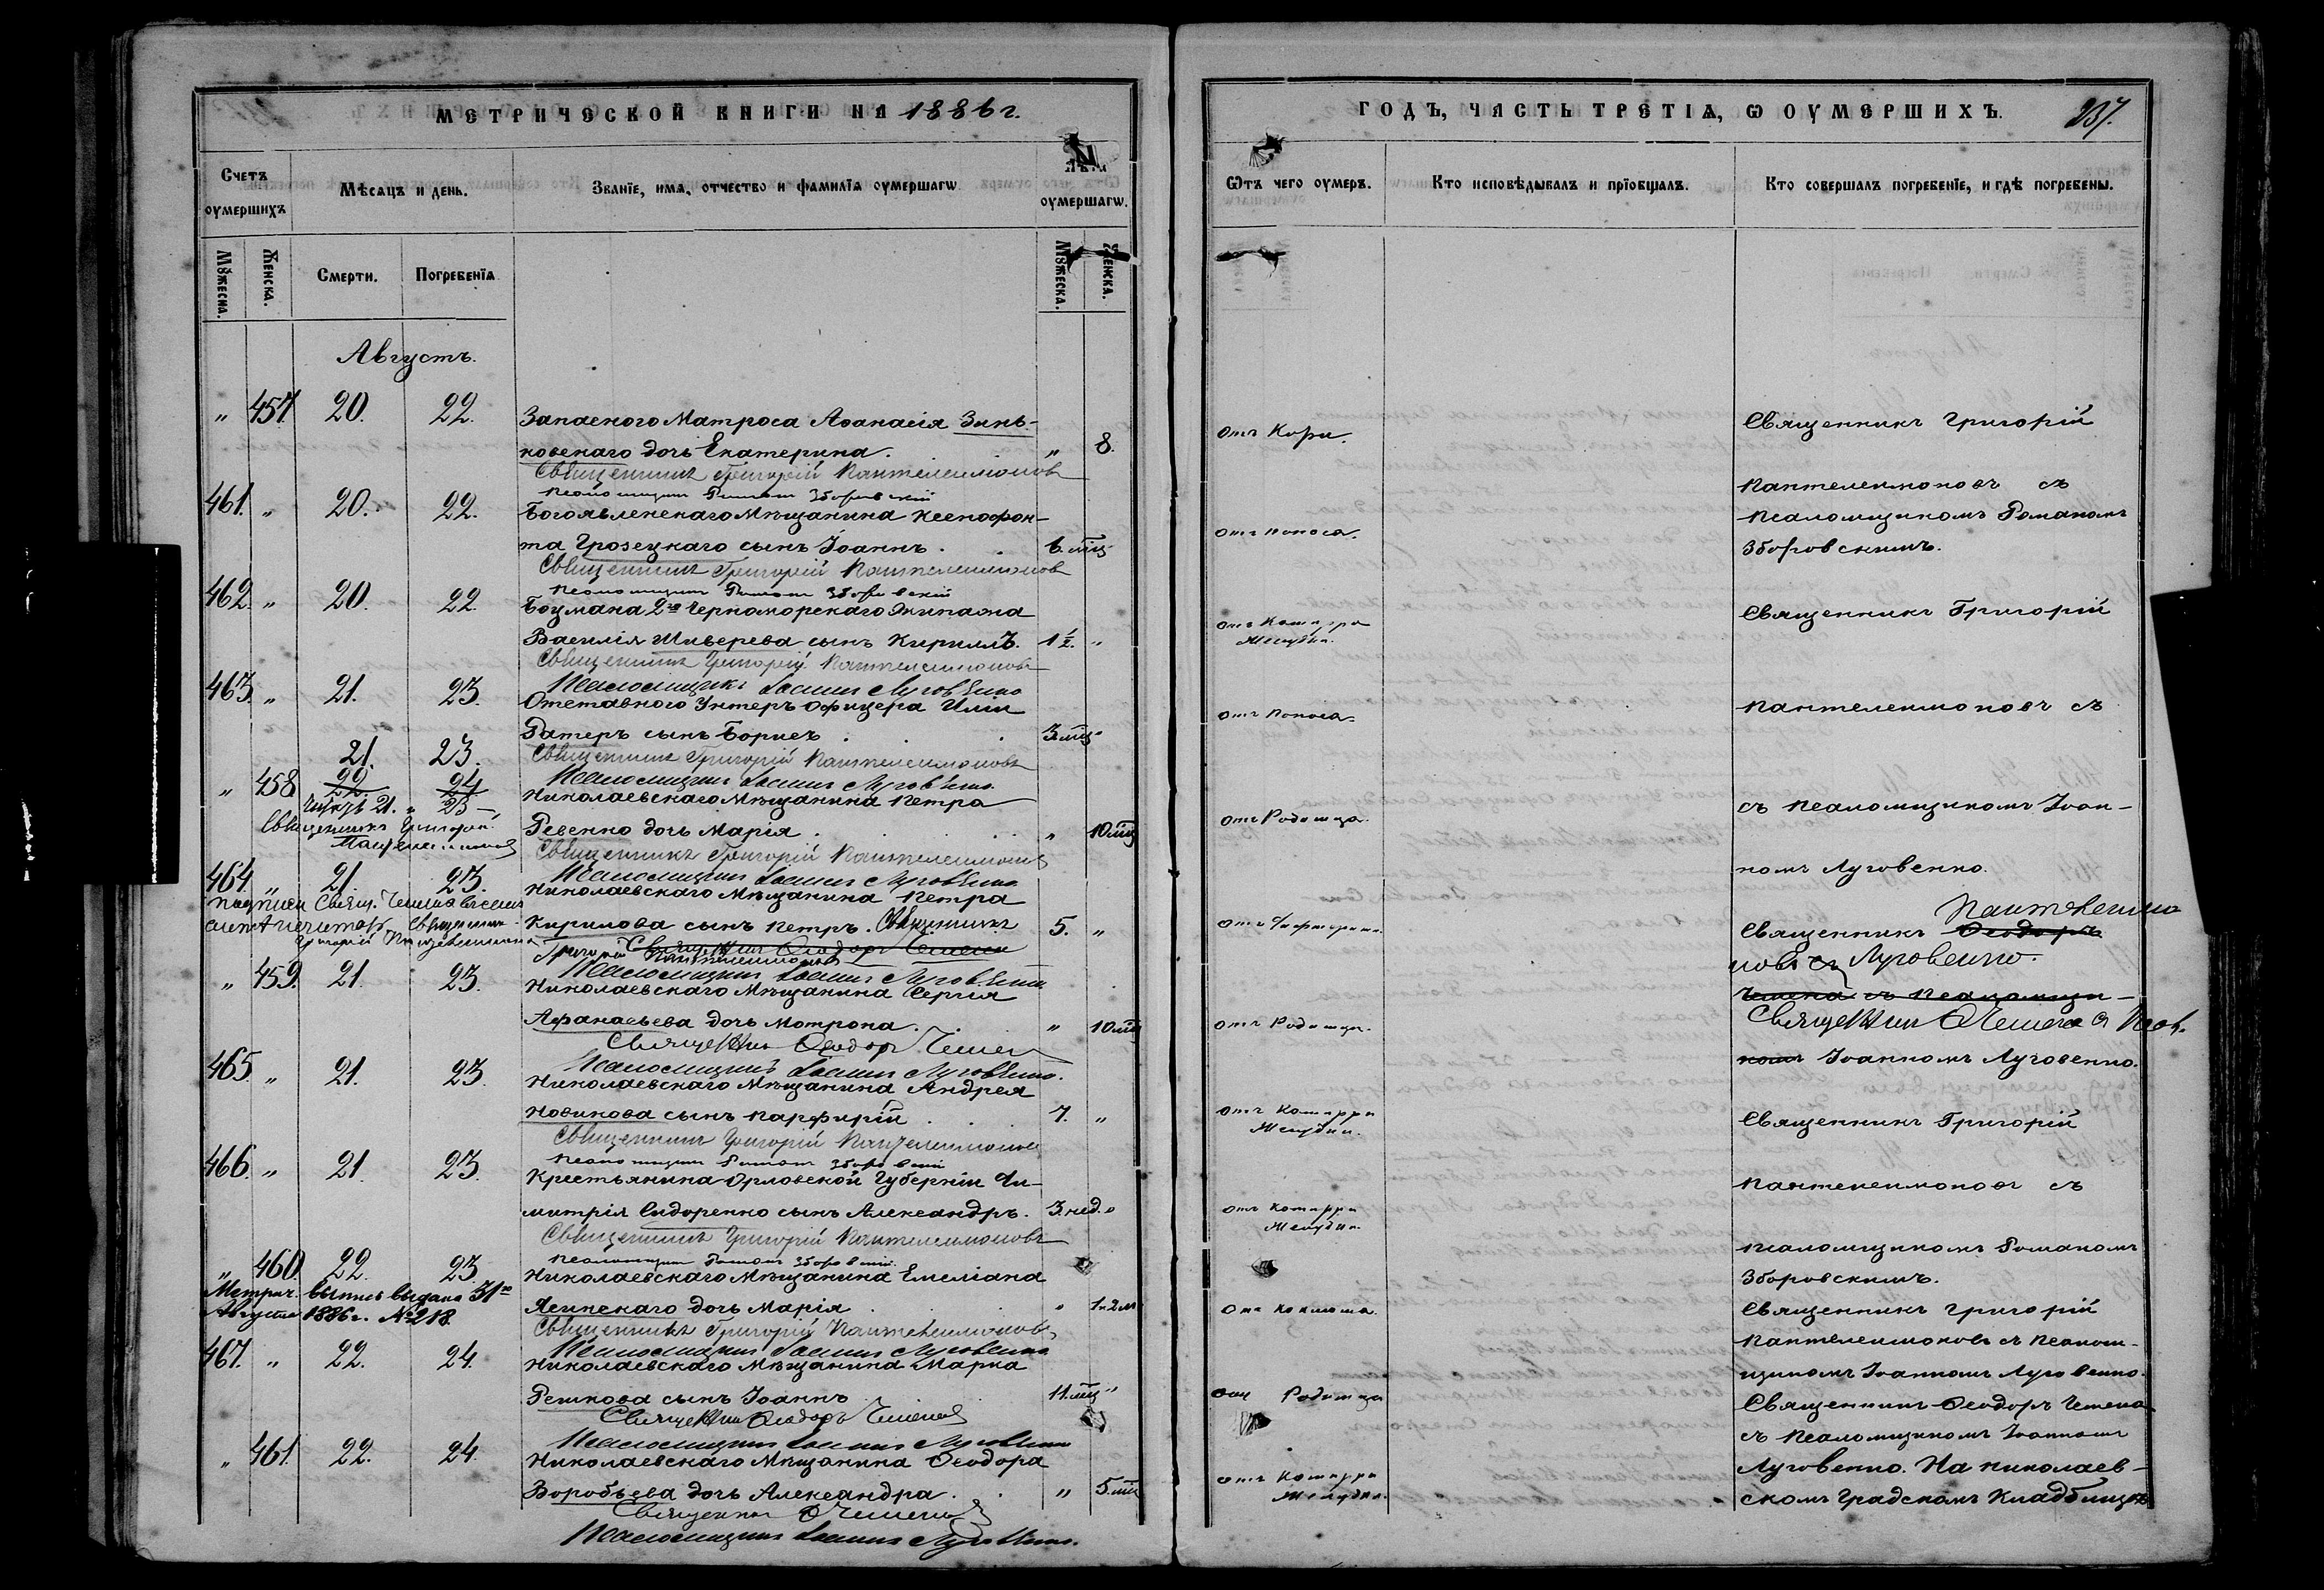 МЕТРИЧЕСКОЙ КНИГИ НА 1886 г.
Счетъ оумершихъ
Мѣсяцъ и день.
Званїе, имѧ, отчество и фамилїѧ оумершагѡ
Лѣта оумершагѡ.
Мꙋжеска.
Женска.
Смерти.
Погребенїѧ
Мꙋжеска.
Женска.
Августъ.
„ 457. 20. 22. Запаснаго Матроса Аѳанасія Зинь-
ковскаго дочь Екатерина. „ 8.
Священникъ Григорій Пантелеимоновъ
Псаломщикъ Романъ Зборовскій
461. „ 20. 22. Богоявленскаго Мѣщанина Ксенофон-
та Грозецкаго сынъ Іоаннъ. 6. мѣс
Священникъ Григорій Пантелеимоновъ
Псаломщикъ Романъ Зборовскій
462. „ 20. 22. Боцмана 2го Черноморскаго Экипажа
Василія Шиверева сынъ Кириллъ. 1 1/2. „
Священникъ Григорій Пантелеимоновъ
Псаломщикъ Іоаннъ Луговенко
463. „ 21. 23. Отставного Унтеръ Офицера Иліи
Ратеръ сынъ Борисъ. 3. мѣс „
21. 23. Священникъ Григорій Пантелеимоновъ
Псаломщикъ Іоаннъ Луговенко
„ 458 22. 24 Николаевскаго Мѣщанина Петра
Читать 21. „ 23 —
Священникъ Григорій Ревенко дочь Марія. „ 10 мѣс
Пантелеимоновъ
Священникъ Григорій Пантелеимоновъ
Псаломщикъ Іоаннъ Луговенко
464. „ 21. 23. Николаевскаго Мѣщанина Петра
Подписи Свящ. Чемена
не читать Священникъ Кирилова сынъ Петръ. Священникъ 5. „
Григорій Пантелеимоновъ
Григорій Священникъ Ѳеодоръ Чемена
Пантелеимоновъ
Псаломщикъ Іоаннъ Луговенко
„ 459. 21. 23. Николаевскаго Мѣщанина Сергія
Афанасьева дочь Мотрона. „ 10 мѣс
Священникъ Ѳеодоръ Чемена
Псаломщикъ Іоаннъ Луговенко.
465. „ 21. 23. Николаевскаго Мѣщанина Андрея
Новикова сынъ Парфирій. 7. „
Священникъ Григорій Пантелеимоновъ
Псаломщикъ Романъ Зборовскій
466. „ 21. 23. Крестьянина Орловской Губерніи Ди-
митрія Сидоренко сынъ Александръ. 3. нед. „
Священникъ Григорій Пантелеимоновъ
Псаломщикъ Романъ Зборовскій.
„ 460. 22. 23. Николаевскаго Мѣщанина Емеліана
Метрич. выпись выдана 31го
Августа 1886 г. № 218. Ясинскаго дочь Марія. „ 1 и 2 м
Священникъ Григорій Пантелеимоновъ
Псаломщикъ Іоаннъ Луговенко
467. „ 22. 24. Николаевскаго Мѣщанина Марка
Решкова сынъ Іоаннъ. 11. мѣс „
Священникъ Ѳеодоръ Чемена
Псаломщикъ Іоаннъ Луговенко
„ 461. 22. 24. Николаевскаго Мѣщанина Ѳеодора
Воробьева дочь Александра. „ 5. мѣс
Священникъ Ѳ Чемена
Псаломщикъ Іоаннъ Луговенко.
ГОДЪ, ЧАСТЬ ТРЕТІѦ, Ѡ ОУМЕРШИХЪ. 237.
Ѿтъ чего оумеръ.
Кто исповѣдывалъ и прїобщалъ.
Кто совершалъ погребенїе, и гдѣ погребены.
отъ Кори. Священникъ Григорій
Пантелеимоновъ съ
Псаломщикомъ Романомъ
отъ поноса. Зборовскимъ.
отъ Катарра Священникъ Григорій
Желудка.
отъ Поноса. Пантелеимоновъ съ
отъ Родимца. съ Псаломщикомъ Іоан-
номъ Луговенко.
Пантелеимо
отъ Дифтерита. Священникъ Ѳеодоръ
новъ съ Луговенко.
Чемена съ Псаломщи-
отъ Родимца. Священник Ѳ Чемена съ Псал.
комъ Іоанномъ Луговенко.
отъ Катарра Священникъ Григорій
Желудка.
Пантелеимоновъ съ
отъ Катарра
Желудка.
псаломщикомъ Романомъ
Зборовскимъ.
отъ Коклюша. Священникъ Григорій
Пантелеимоновъ съ Псалом-
щикомъ Іоанномъ Луговенко.
отъ Родимца Священникъ Ѳеодоръ Чемена
съ Псаломщикомъ Іоанномъ
Луговенко. На Николаев-
отъ Катарра
Желудка. скомъ Градскомъ Кладбищѣ